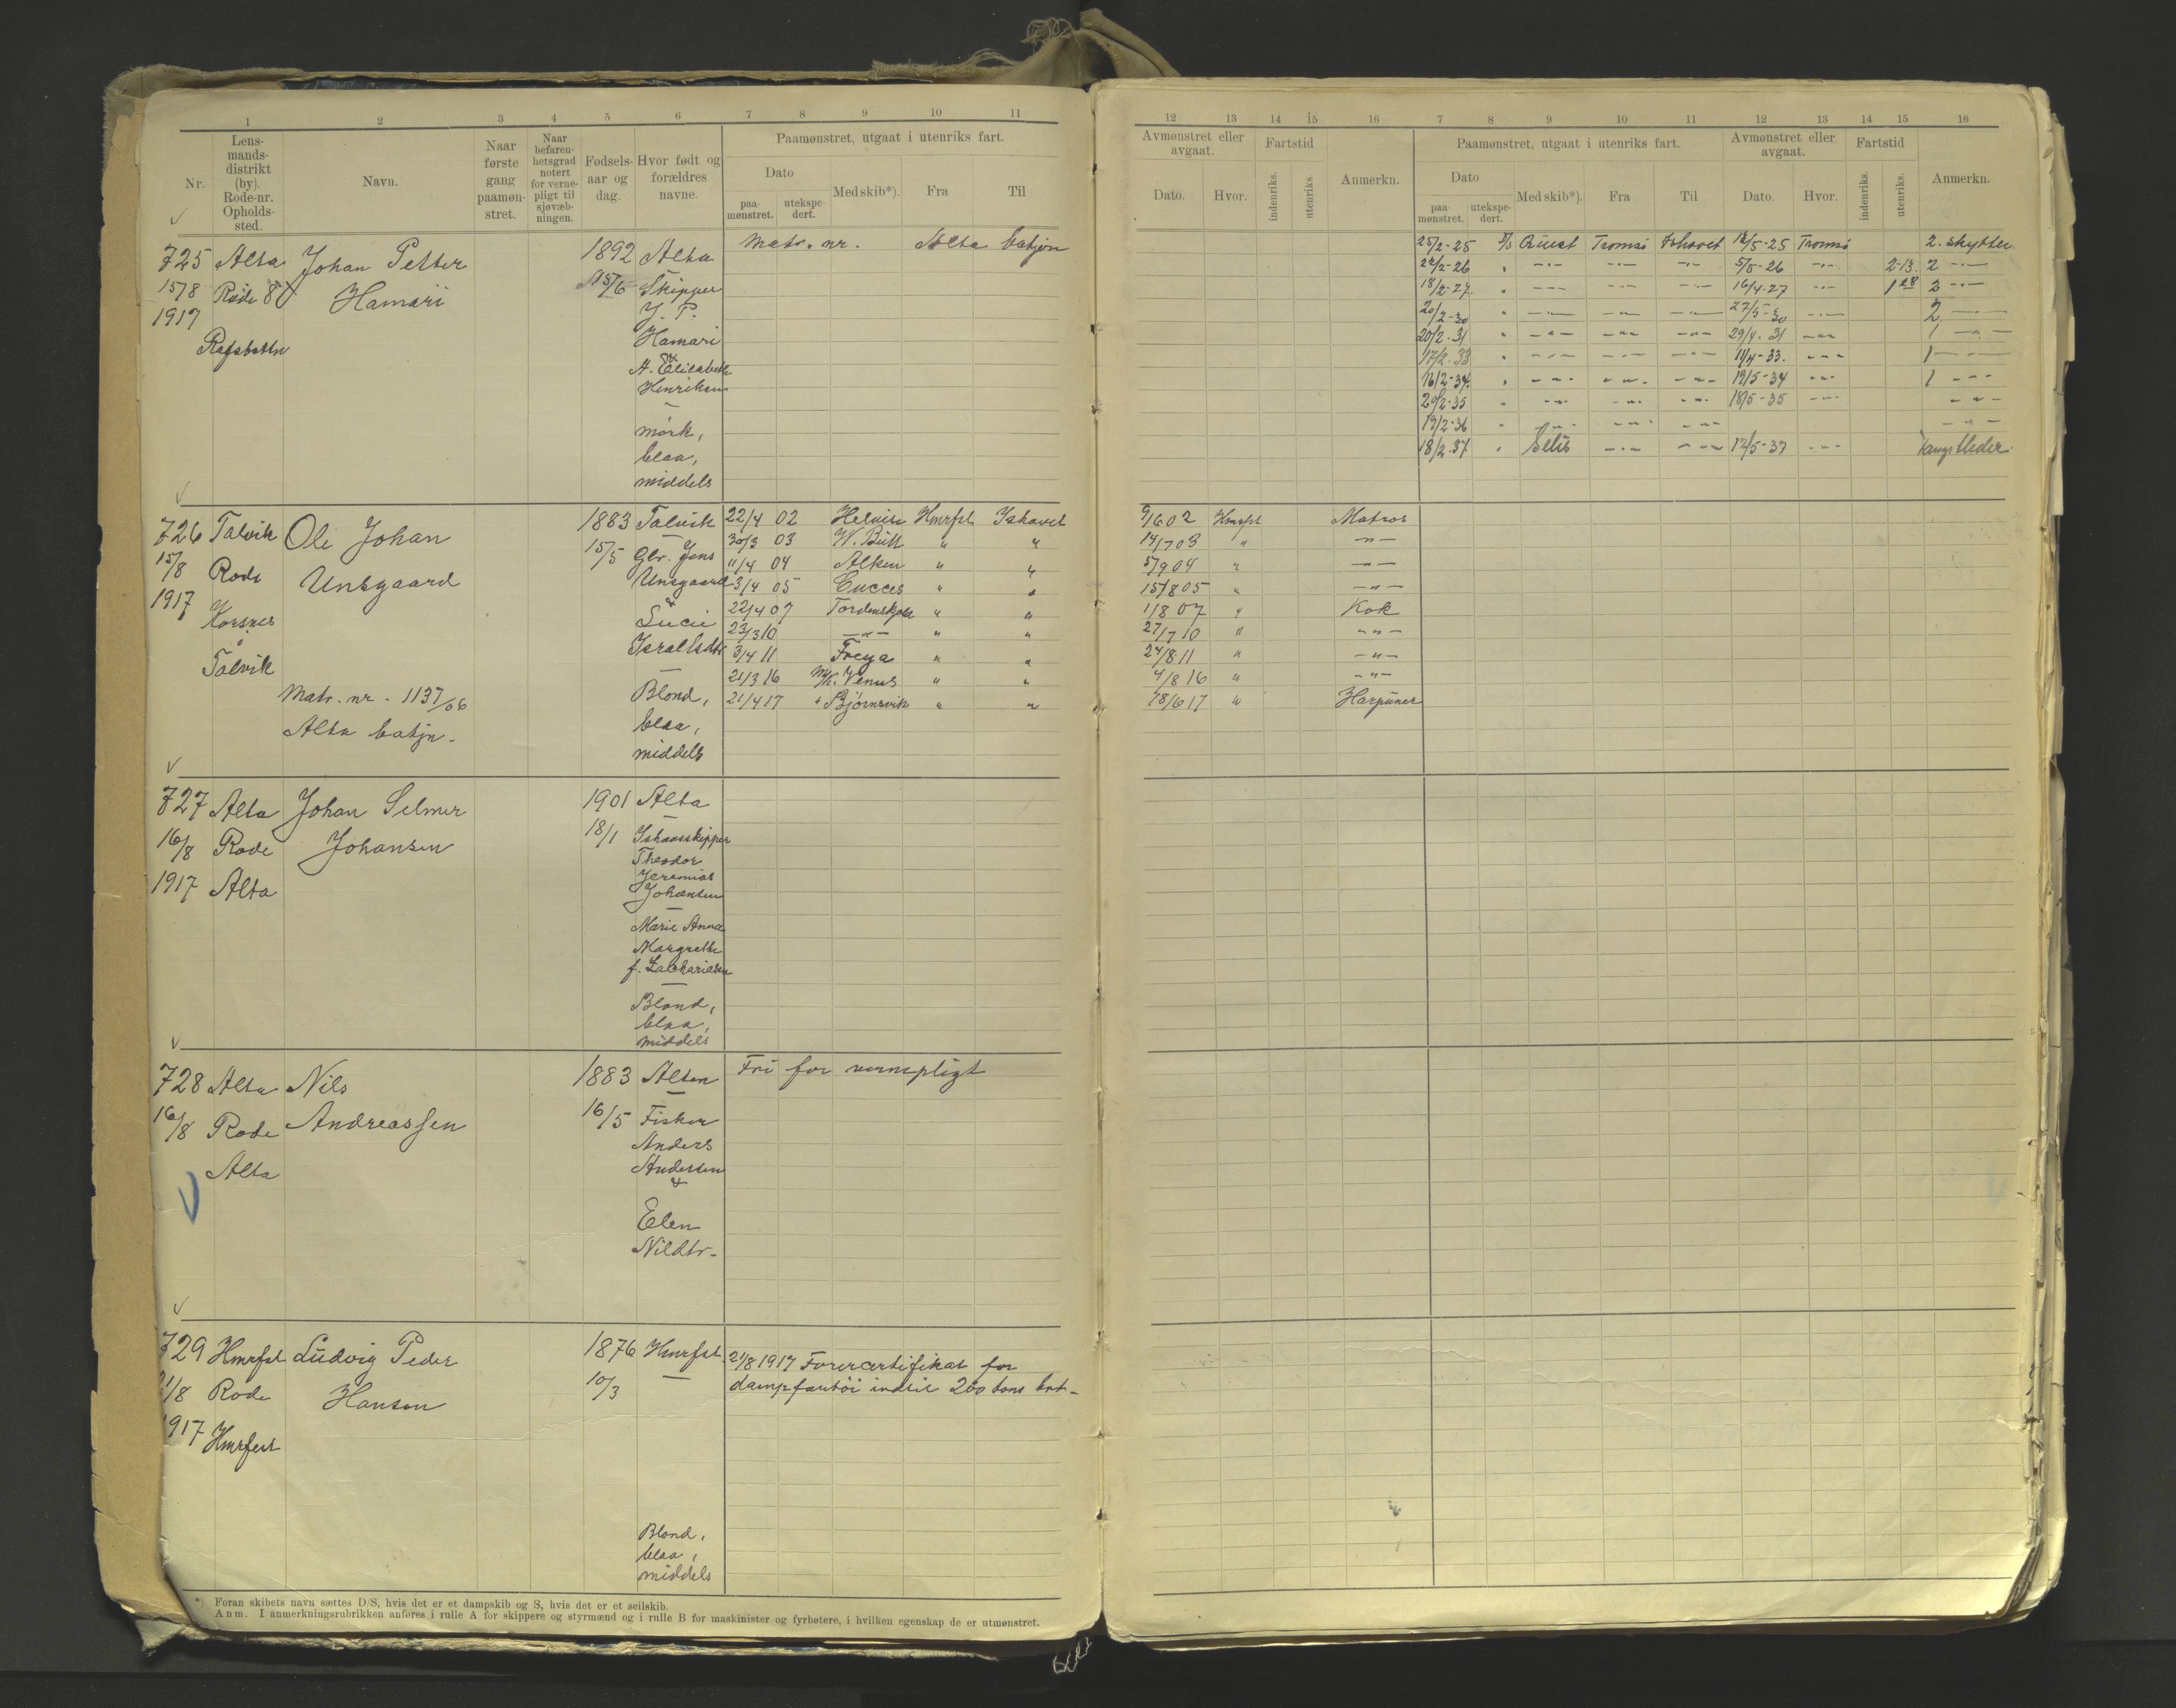 1 2 3 4 5 6 7 8 9 10 11
Nr.
Lens-
mands-
distrikt
(by).
Rode-nr.
Opholds-
sted.
Navn.
Naar
første
gang
paamøn-
stret.
Naar
befaren-
hetsgrad
notert
for verne-
pligt til
sjøvæb-
ningen.
Fødsels-
aar og
dag.
Hvor født og
forældres
navne.
Paamønstret, utgaat i utenriks fart.
Dato
paa-
mønstret.
utekspe-
dert.
Med skib*).
Fra
Til
725 Alta Johan Petter 1892 Alta Matr. nr. Alta batjon
15/8 Rode 8 Hamari 15/6 Skipper
1917 J. P.
Rafsbotn Hamari
&
A. Elisabeth
Henriksen
—
mørk,
blaa,
middels
726 Talvik Ole Johan 1883 Talvik 22/4 02 Helvise Hmrfst Ishavet
15/8 Rode Unsgaard 15/5 Gbr. Jens 30/3 03 W. Bull " "
1917 Korsnes Unsgaard 11/4 04 Alken " "
Talvik & 3/4 05 Succes " "
Lucie 22/4 07 Tordenskjold " "
Israelsdtr 23/3 10 —"— " "
— 3/4 11 Freya " "
Matr. nr. 1137/06 Blond, 21/3 16 M/K. Venus " "
Alta batjn. blaa, 21/4 17 " Bjørnsvik " "
middels
727 Alta Johan Selmer 1901 Alta
16/8 Rode Johansen 18/1 Ishavsskipper
1917 Alta Theodor
Jeremias
Johansen
—
Marie Anna
Margrethe
f. Zachariasen
—
Blond,
blaa,
middels
728 Alta Nils 1883 Alten Fri for vernepligt
16/8 Rode Andreassen 16/5 Fisker
Alta Anders
Andersen
&
Elen
Nilsdtr.
729 Hmrfst Ludvig Peder 1876 Hmrfst. 21/8 1917 Førercertifikat for
21/8 Rode Hansen 10/3 — dampfartøi indtil 200 tons brt.
1917 Hmrfest
Blond,
blaa,
middels
*) Foran skibets navn sættes D/S, hvis det er et dampskib og S, hvis det er et seilskib.
Anm. I anmerkningsrubrikken anføres i rulle A for skippere og styrmænd og i rulle B for maskinister og fyrbøtere, i hvilken egenskap de er utmønstret.
12 13 14 15 16 7 8 9 10 11 12 13 14 15 16
Avmønstret eller
avgaat.
Dato.
Hvor.
Fartstid
indenriks.
utenriks.
Anmerkn.
Paamønstret, utgaat i utenriks fart.
Dato
paa-
mønstret.
utekspe-
dert.
Med skib*).
Fra
Til
Avmønstret eller
avgaat.
Dato.
Hvor.
Fartstid
indenriks.
utenriks.
Anmerkn.
25/2-25 Quest Tromsø Ishavet 12/5-25 Tromsø 2. skytter
22/2-26 " —"— —"— —"— 5/5-26 —"— 2-13 2 —"—
18/2-27 " —"— —"— —"— 16/4-27 —"— 1 28 2 —"—
20/2-30 " —"— —"— —"— 27/5-30 —"— 2 —"—
20/2.31 " —"— —"— —"— 29/4.31 —"— 1 —"—
17/2.33 " —"— —"— —"— 11/4-33. —"— 1 —"—
16/2-34. " —"— —"— —"— 19/5-34 —"— 1 —"—
20/2-35 " —"— —"— —"— 18/5-35 —"— —"—
19/2-36 " —"— —"— —"— —"—
18/2.37. " Selis —"— —"— 12/5-37 —"— Fangstleder.
9/6 02 Hmrfst Matros
14/7 03 " —"—
5/9 04 " —"—
15/8 05 " —"—
1/8 07 " Kok
27/7 10 " —"—
24/8 11 " —"—
4/8 16 " —"—
18/6 17 " Harpuner